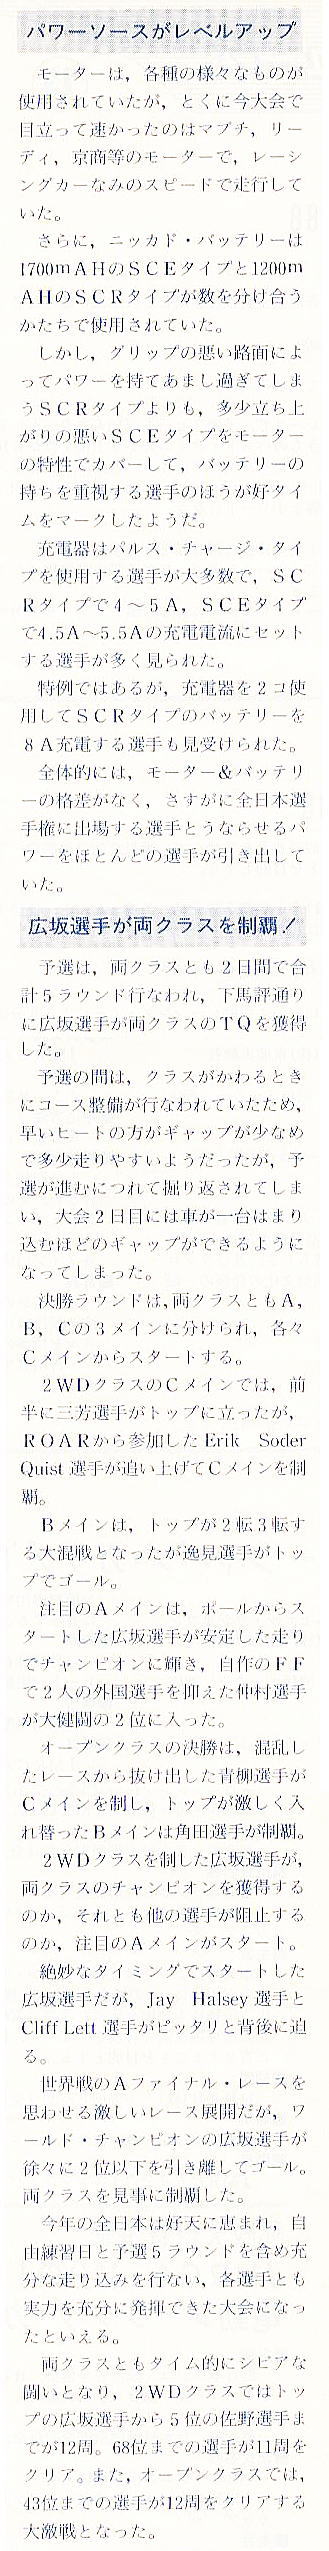 パワーソースがレベルアップ
　モーターは，各種の様々なものが
使用されていたが，とくに今大会で
目立って速かったのはマブチ，リー
ディ，京商等のモーターで，レーシ
ングカーなみのスピードで走行して
いた。
　さらに，ニッカド・バッテリーは
1700ｍＡＨのＳＣＥタイプと1200ｍ
ＡＨのＳＣＲタイプが数を分け合う
かたちで使用されていた。
　しかし，グリップの悪い路面によ
ってパワーを持てあまし過ぎてしま
うＳＣＲタイプよりも，多少立ち上
がりの悪いＳＣＥタイプをモーター
の特性でカバーして，バッテリーの
持ちを重視する選手のほうが好タイ
ムをマークしたようだ。
　充電器はパルス・チャージ・タイ
プを使用する選手が大多数で，ＳＣ
Ｒタイプで４〜５Ａ，ＳＣＥタイプ
で4.5Ａ〜5.5Ａの充電電流にセット
する選手が多く見られた。
　特例ではあるが，充電器を２コ使
用してＳＣＲタイプのバッテリーを
８Ａ充電する選手も見受けられた。
　全体的には，モーター＆バッテリ
ーの格差がなく，さすがに全日本選
手権に出場する選手とうならせるパ
ワーをほとんどの選手が引き出して
いた。
広坂選手が両クラスを制覇！
　予選は，両クラスとも２日間で合
計５ラウンド行なわれ，下馬評通り
に広坂選手が両クラスのＴＱを獲得
した。
　予選の間は，クラスがかわるとき
にコース整備が行なわれていたため，
早いヒートの方がギャップが少なめ
で多少走りやすいようだったが，予
選が進むにつれて掘り返されてしま
い，大会２日目には車が一台はまり
込むほどのギャップができるように
なってしまった。
　決勝ラウンドは，両クラスともＡ，
Ｂ，Ｃの３メインに分けられ，各々
Ｃメインからスタートする。
　２ＷＤクラスのＣメインでは，前
半に三芳選手がトップに立ったが，
ＲＯＡＲから参加した Erik　Soder
Quist 選手が追い上げてＣメインを制
覇。
　Ｂメインは，トップが２転３転す
る大混戦となったが逸見選手がトッ
プでゴール。
　注目のＡメインは，ポールからス
タートした広坂選手が安定した走り
でチャンピオンに輝き，自作のＦＦ
で２人の外国選手を抑えた仲村選手
が大健闘の２位に入った。
　オープンクラスの決勝は，混乱し
たレースから抜け出した青柳選手が
Ｃメインを制し，トップが激しく入
れ替ったＢメインは角田選手が制覇。
　２ＷＤクラスを制した広坂選手が，
両クラスのチャンピオンを獲得する
のか，それとも他の選手が阻止する
のか，注目のＡメインがスタート。
　絶妙なタイミングでスタートした
広坂選手だが，Jay　Halsey 選手と
Cliff Lett 選手がピッタリと背後に迫
る。
　世界戦のＡファイナル・レースを
思わせる激しいレース展開だが，ワ
ールド・チャンピオンの広坂選手が
徐々に２位以下を引き離してゴール。
両クラスを見事に制覇した。
　今年の全日本は好天に恵まれ，自
由練習日と予選５ラウンドを含め充
分な走り込みを行ない，各選手とも
実力を充分に発揮できた大会になっ
たといえる。
　両クラスともタイム的にシビアな
闘いとなり，２ＷＤクラスではトッ
プの広坂選手から５位の佐野選手ま
でが12周。68位までの選手が11周を
クリア。また，オープンクラスでは，
43位までの選手が12周をクリアする
大激戦となった。